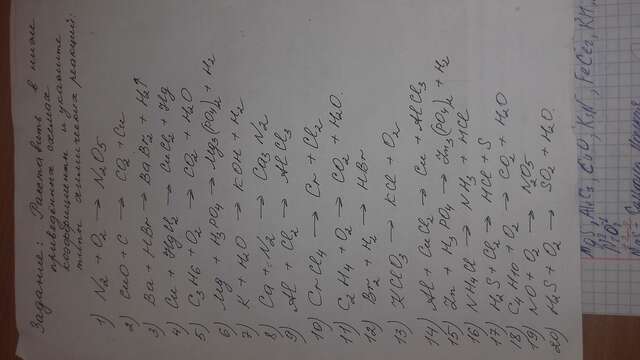 Задание: Расставить в ниже
приведённых схемах
коэффициенты и укажите
типы химических реакций:
1) N2 + O2 → N2O5
2) CuO + C → CO2 + Cu
3) Ba + HBr → BaBr2 + H2↑
4) Cu + HgCl2 → CuCl2 + Hg
5) C3H6 + O2 → CO2 + H2O
6) Mg + H3PO4 → Mg3(PO4)2 + H2
7) K + H2O → KOH + H2
8) Ca + N2 → Ca3N2
9) Al + Cl2 → AlCl3
10) CrCl4 → Cr + Cl2
11) C2H4 + O2 → CO2 + H2O.
12) Br2 + H2 → HBr
13) KClO3 → KCl + O2
14) Al + CuCl2 → Cu + AlCl3
15) Zn + H3PO4 → Zn3(PO4)2 + H2
16) NH4Cl → NH3 + HCl
17) H2S + Cl2 → HCl + S
18) C4H10 + O2 → CO2 + H2O
19) NO + O2 → N2O5
20) H2S + O2 → SO2 + H2O.